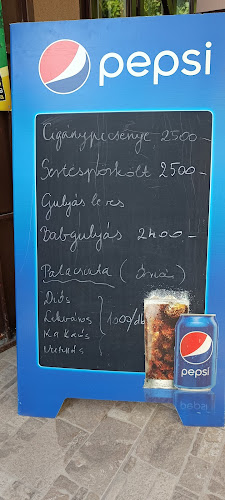 pepsi
Cigánypecsenye 2500-
Sertéspörkölt 2500-
Gulyás leves
Babgulyás 2400-
Palacsinta (Óriá)
Diós
Lekváros
Kakaós
1000/db
pepsi